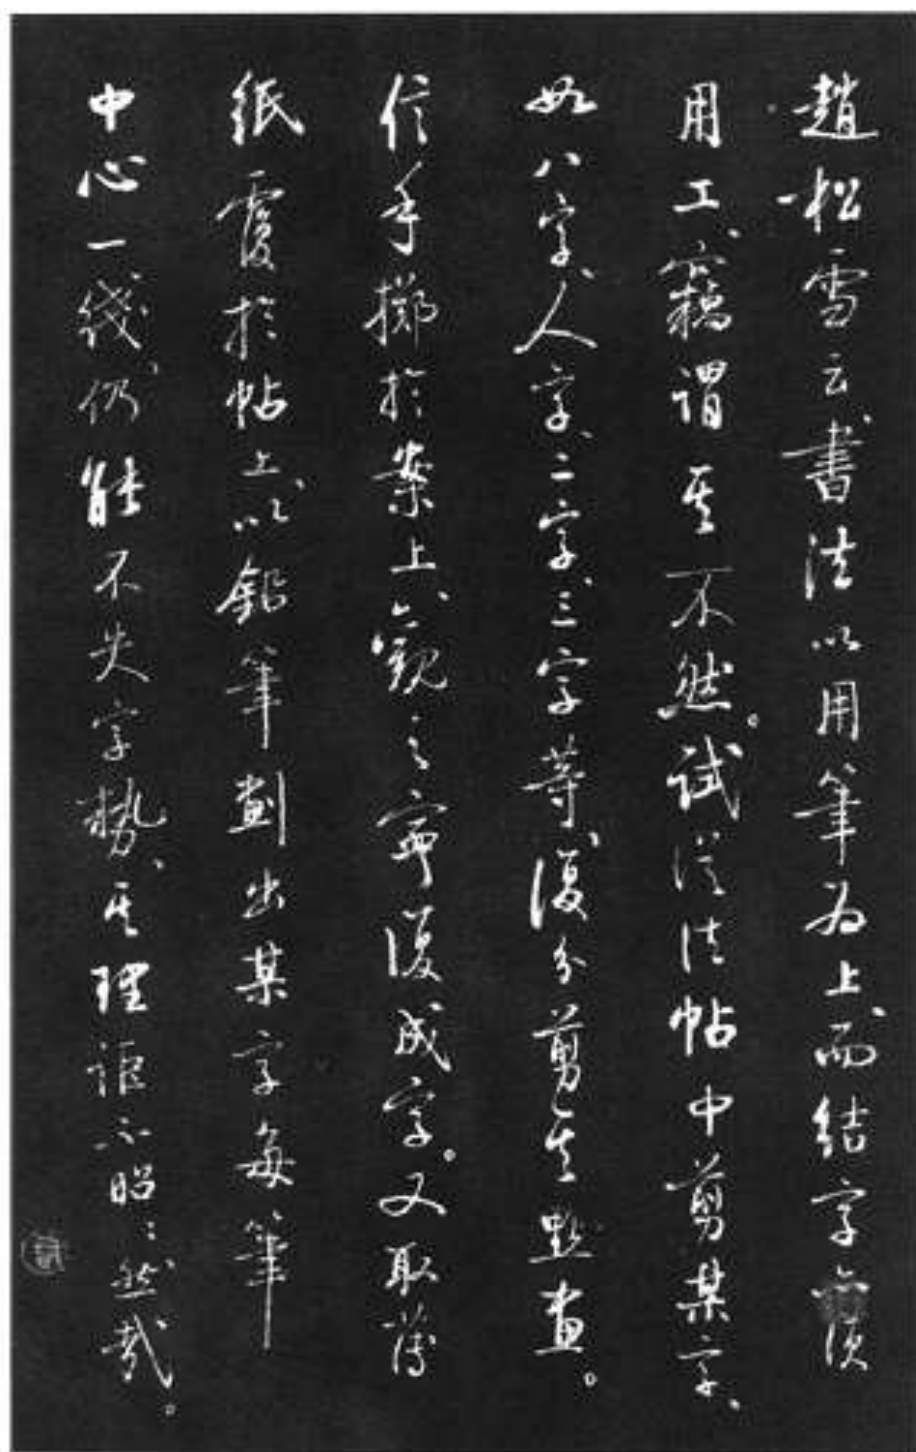 趙松雪云、書法以用筆為上、而結字亦須
用工、竊謂其不然。試從法帖中剪某字、
如八字、人字、二字、三字等、復分剪其點畫。
信手擲於案上、觀之寧復成字。又取薄
紙覆於帖上、以鉛筆劃出某字每筆
中心一綫、仍能不失字勢、其理詎不昭:然哉。